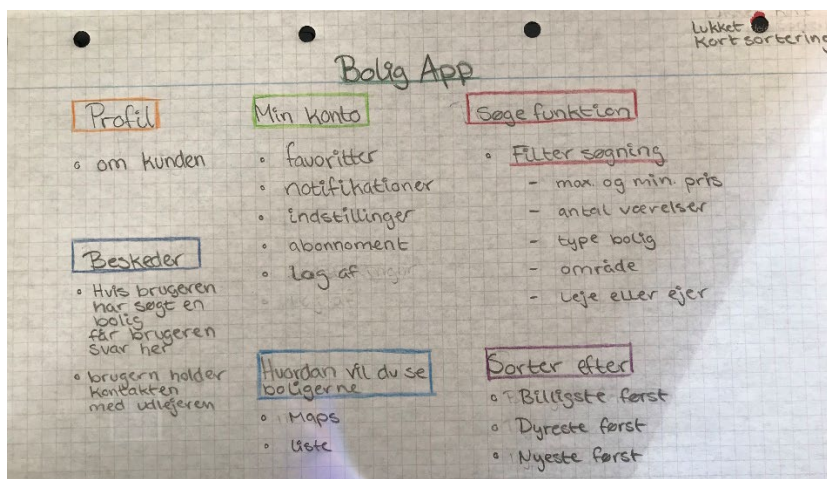 Lukket
Kortsortering
Bolig App
Profil
om kunden
Beskeder
Hvis brugeren
har søgt en
bolig
får brugeren
svar her
brugern holder
kontakten
med udlejeren
Min konto
favoritter
notifikationer
indstillinger
abonnoment
log af
Hvordan vil du se
boligerne
Maps
liste
Søge funktion
Filter søgning
- max og min. pris
- antal værelser
- type bolig
- område
- leje eller ejer
Sorter efter
Billigste først
Dyreste først
Nyeste først